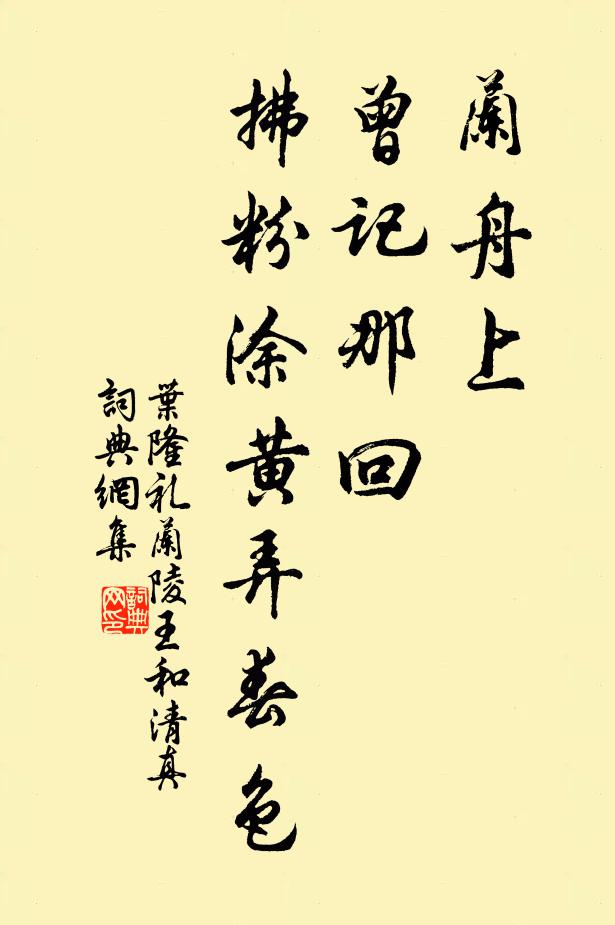 蘭舟上
曾記那回
拂粉涂黄弄春色
葉隆礼蘭陵王和清真
詞典網集
詞典
网印